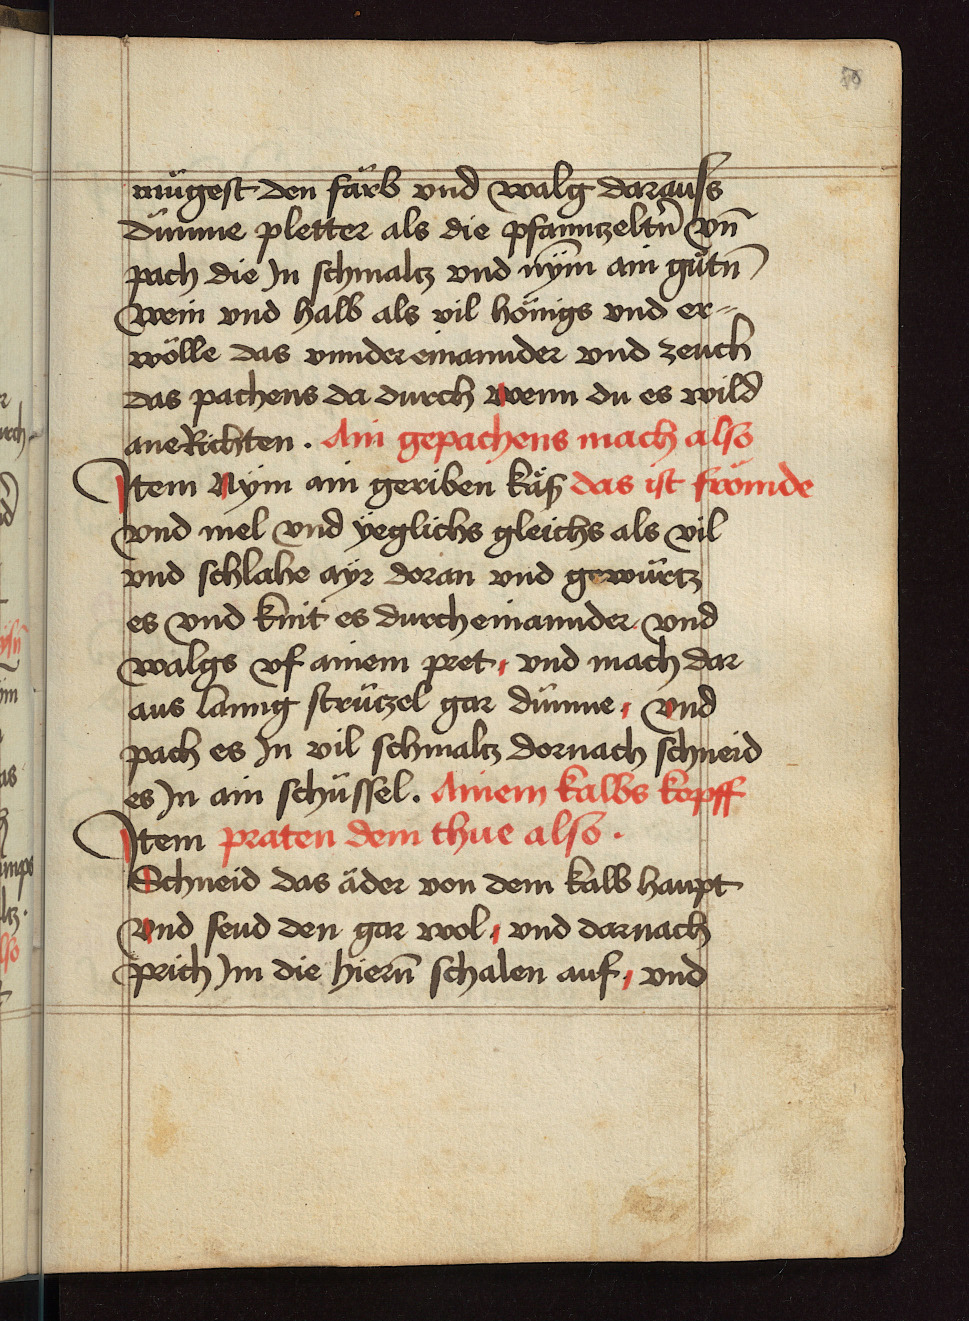 mügest den färb vnd walg darauſs
dünne pletter als die pfanntzeltn̄ vn̄
pach die Jn schmaltz vnd nÿm ain gu̇tn̄
wein vnd halb als vil hönigs vnd er-
wölle das vnnder einannder vnd zeuch
das pachens da durch wenn du es wild
ane Richten . Ain gepachens mach also
Jtem Nÿm ain geriben käß das ist frömde
vnd mel vnd yeglichs gleichs als vil
vnd schlahe ayr doran vnd gewürtz
es vnd knit es durch einannder vnd
walgs vf ainem pret, vnd mach dar
aus lanng strützel gar dünne, vnd
pach es Jn vil schmaltz dornach schneid
es Jn ain schüssel. Ainem kalbs kopff
Jtem praten dem thue also .
Schneid das äder von dem kalb haupt
vnd seud den gar wol, vnd darnach
prich Jm die hiern̄ schalen auf, vnd